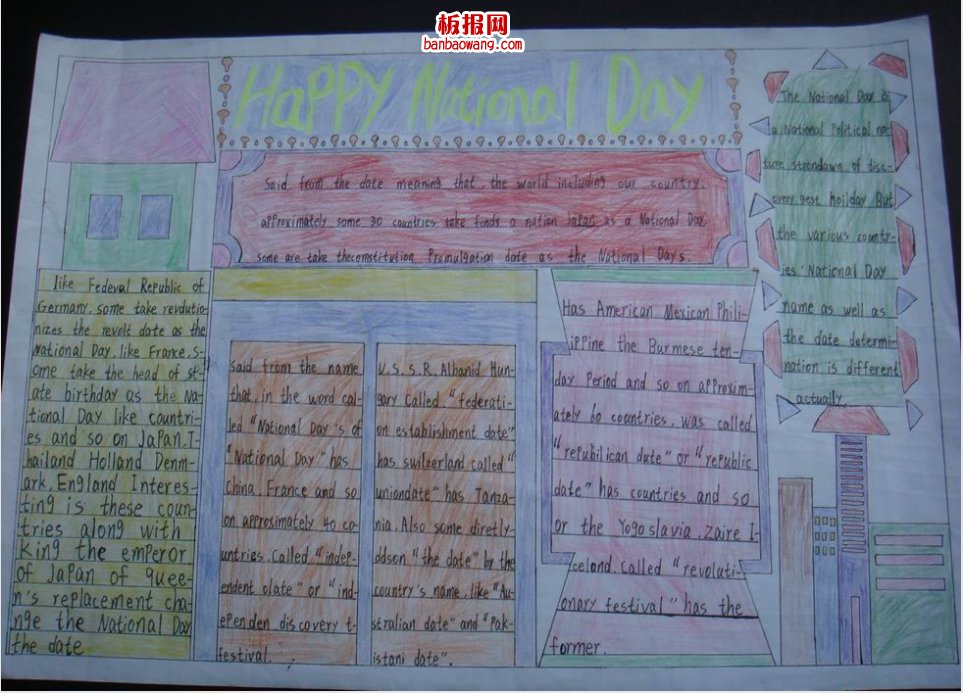 板报网
banbaowang.com
HaPPY National Day
Said from the date meaning that the world including our country,
approximately some 30 countries take finds a nation Japan as a National Day.
some are take theconstitution Promulgation date as the National Days.
The National Day is
a National Political nec-
ture strendawn of disc-
overy gest hoilday But
the various countr-
ies' National Day
name as well as
the date determi-
nation is different
actually
like Fedeval Republic of
Germany. some take revdutio-
nizes the revolt date as the
National Day. like France. S-
ome take the head of st-
ate birthday as the Na-
tional Day like countri-
es and so on Japan. T-
hailand Holland Denm-
ark. England Interes-
ting is these coun-
tries along with
king the emperor
of Japan of quee-
n's replacement cha-
nge the National Day
the date
said from the name
that, in the word cal-
led "National Day's of
"National Day" has
china. France and so
on approximately 40 co-
untries. Called "indep-
endent olate" or "ind-
ependen discovery t-
festival.
U.S.S.R. Albanid Hun-
gary Called. "federati-
on establishment date"
has switzerland called"
uniondate" has Tanza-
nia. Also some diretly-
ddson "the date" by the
country's name. like "Au-
stralian date" and "Pak-
istani date".
Has American Mexican Phili-
ippine the Burmese ten-
day Period and so on approxim-
ately 60 countries, was called
"refubilican dute" or "republic
date" has countries and so
or the Yogoslavia. Zaire I-
celand. Called "revoluti-
onary festival" has the
former.